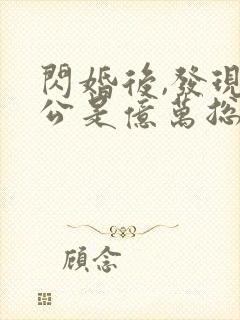 閃婚後,發現
公是億萬總
顧念